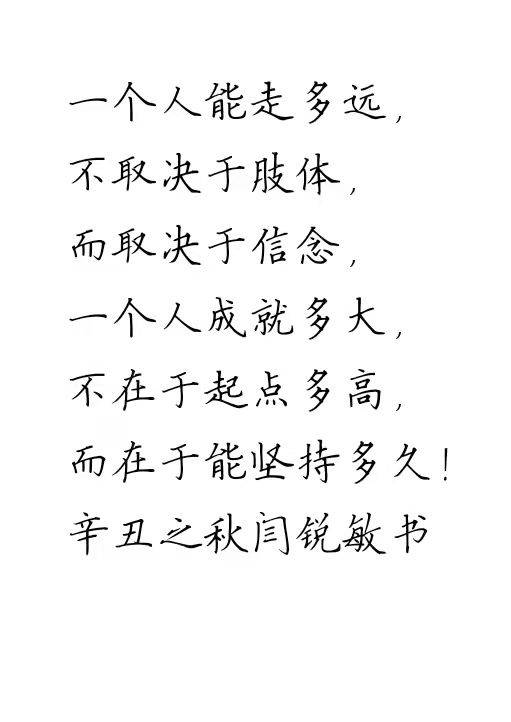 一个人能走多远，
不取决于肢体，
而取决于信念，
一个人成就多大，
不在于起点多高，
而在于能坚持多久！
辛丑之秋闫锐敏书